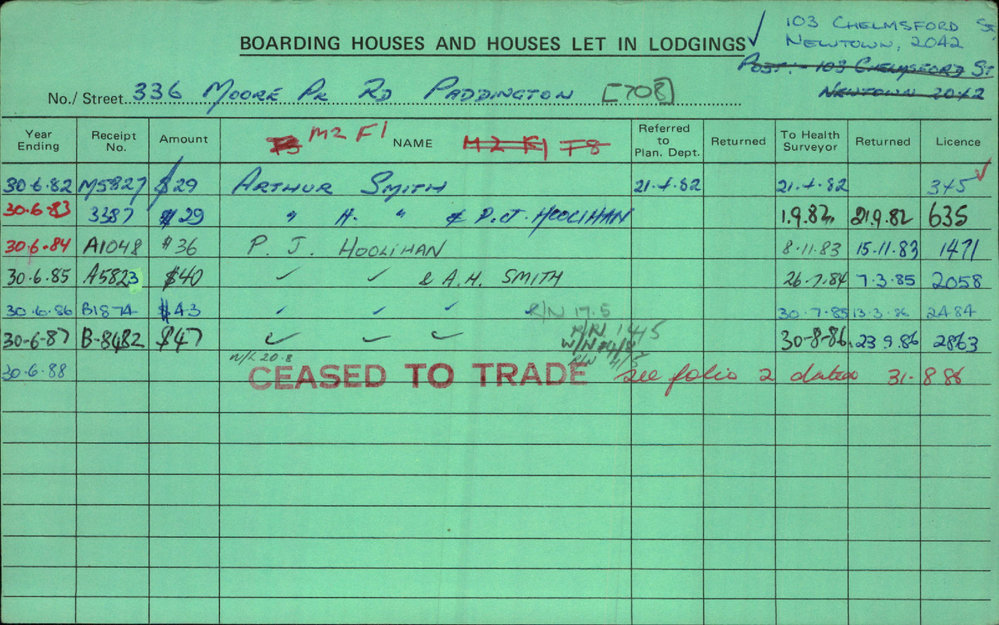 103 CHELMSFORD St
NEWTOWN, 2042
BOARDING HOUSES AND HOUSES LET IN LODGINGS
POST:- 103 CHELMSFORD ST
NEWTOWN 2042
No./Street 336 MOORE PK RD PADDINGTON [708]
Year Ending Receipt No. Amount F3 M2 F1 NAME M2 F1 F8 Referred to Plan. Dept. Returned To Health Surveyor Returned Licence
30.6.82 M5827 $29 ARTHUR SMITH 21.4.82 21.4.82 345
30.6.83 3387 $29 " A. " & P.J. HOOLIHAN 1.9.82 21.9.82 635
30.6.84 A1048 $36 P. J. HOOLIHAN 8.11.83 15.11.83 1471
30.6.85 A5823 $40 ✓ ✓ & A.H. SMITH 26.7.84 7.3.85 2058
30.6.86 B1874 $43 ✓ ✓ ✓ R/N 17.5 30.7.85 13.3.86 2484
30-6-87 B-8482 $47 ✓ ✓ ✓ R/N 14/5 30-8-86 23.9.86 2863
30.6.88 N/L 20.8 CEASED TO TRADE See folio 2 dated 31.8.88